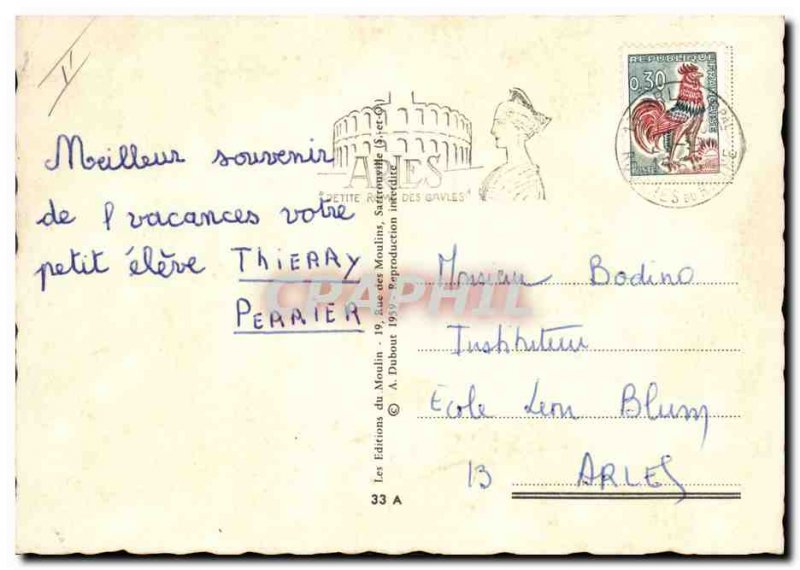 Meilleur souvenir
de l vacances votre
petit élève THIERRY
PERRIER
ARLES
"PETITE ROME DES GAULES"
REPUBLIQUE
FRANCAISE
0,30
CPAPHIL
Les Editions du Moulin - 19, Rue des Moulins, Sartrouville (S.-et-O.)
© A. Dubout 1959 - Reproduction interdite
33 A
Monsieur Bodino
Instituteur
Ecole Leon Blum
13 ARLES